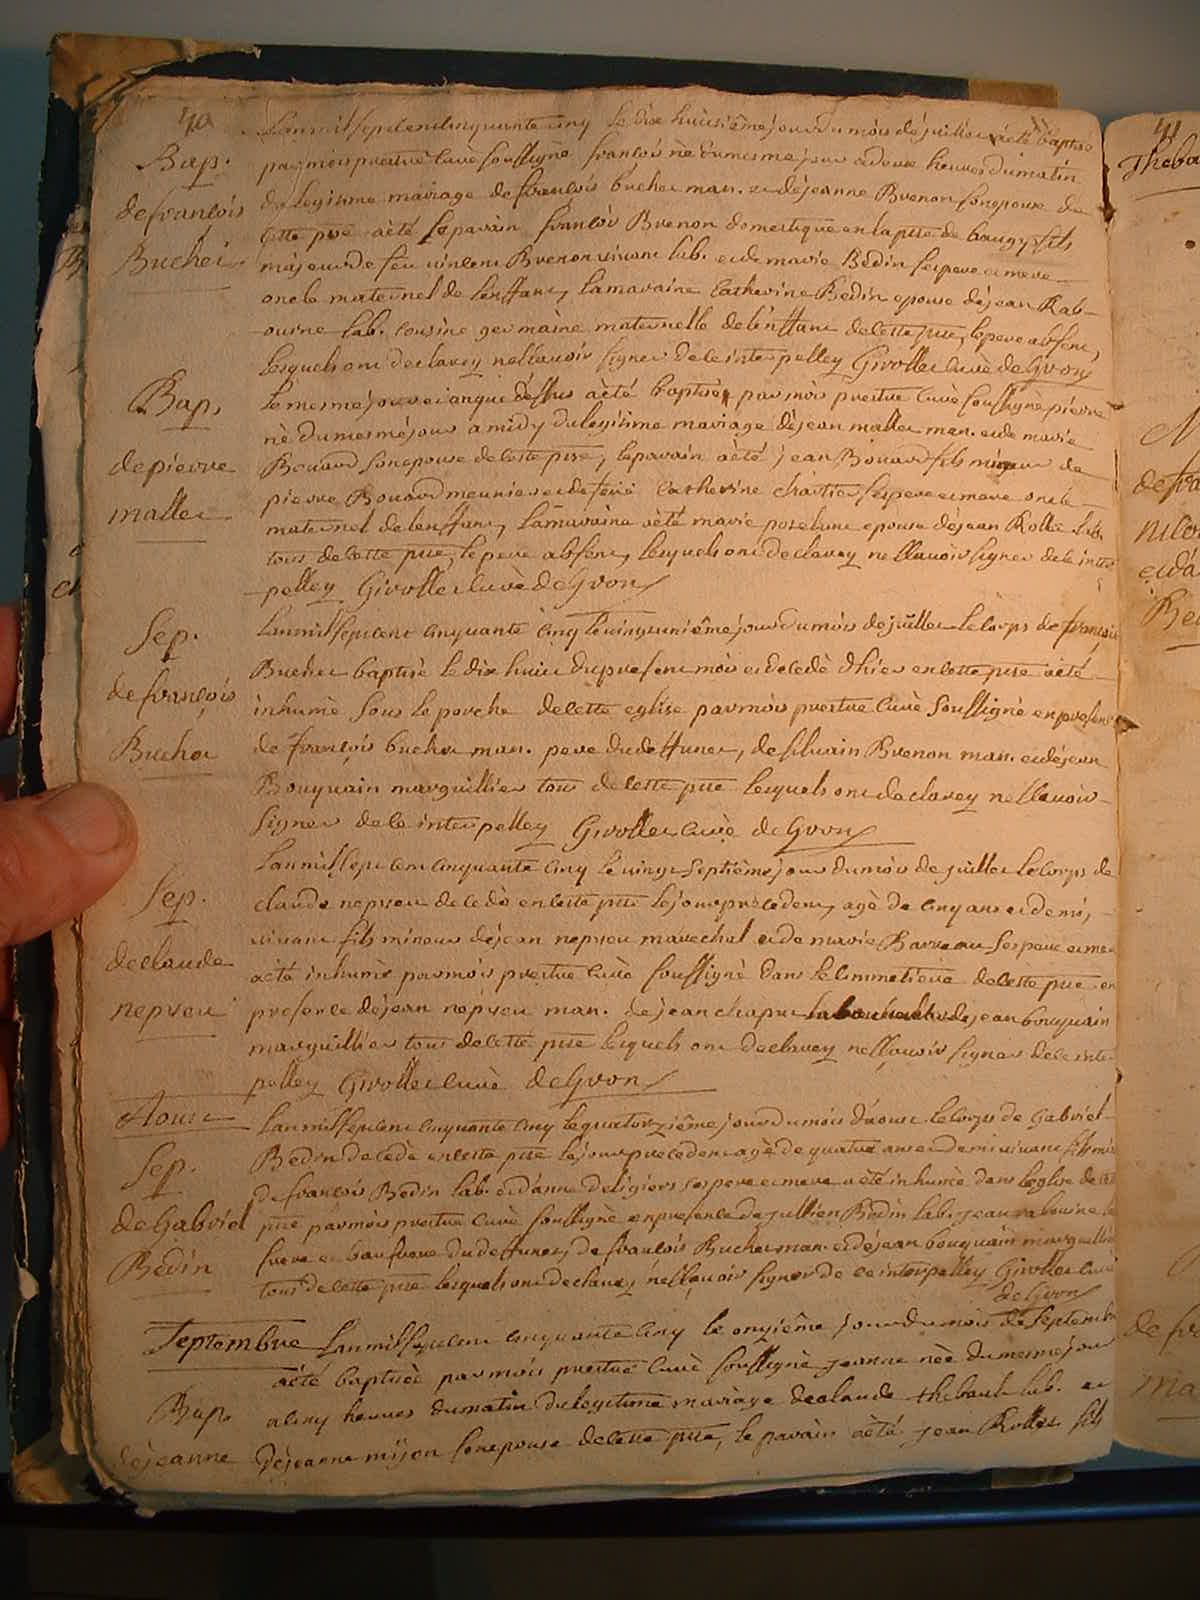 40
Bap.
de francois
Buchet
Lan mil sept cent cinquante cinq le dix huitième jour du mois de juillet a èté baptisé
par mois prestre curè soussignè francois nè du mesme jour a deux heures du matin
du legitime mairage de francois buchet man. et de jeanne Brenon son epouse de
cette psse a èté le parain francois Brenon domestique en la psse de baugy fils
majeur de feu vincent Brenon vivant lab. et de marie Bedin ses pere et mere
oncle maternel de lenffant, la maraine Catherine Bedin epouse de jean Rab-
ourne lab. cousine germaine maternelle de lenffant de cette psse, le pere absent,
lesquels ont declarey ne sсavoir signer de ce interpelley Girollet curè de Gron
Bap.
de pierre
mallet
Le mesme jour et an que dessus a èté baptisé par mois prestre curè soussignè pierre
nè du mesme jour a midy du legitime mariage de jean mallet man. et de marie
Bouard son epouse de cette psse, le parain a èté jean Bouard fils mineur de
pierre Bouard meunier et de feüe Catherine chartier ses pere et mere oncle
maternel de lenffant, la maraine a èté marie epouse de jean Rollet lab.
tous de cette psse, le pere absent, lesquels ont declarey ne sсavoir signer de ce inter
pelley Girollet curè de Gron
Sep.
de francois
Buchet
Lan mil sept cent cinquante cinq le vingt unième jour du mois de juillet le corps de francois
Buchet baptisé le dix huit du present mois et decedè dhier en cette psse a èté
inhumè sous le porche de cette eglise par mois prestre curè soussignè en presence
de francois buchet man. pere du deffunct, de silvain Brenon man. et de jean
Bouquain marguillier tous de cette psse lesquels ont declarey ne sсavoir
signer de ce interpelley Girollet curè de Gron
Sep.
de claude
nepveu
Lan mil sept cent cinquante cinq le vingt septième jour du mois de juillet le corps de
claude nepveu decedè en cette psse le jour precedent, agè de cinq ans et demi,
vivant fils mineur de jean nepveu marechal et de marie Barreau ses pere et mere
a èté inhumè par mois prestre curè soussignè dans le cimmetiere de cette psse en
presence de jean nepveu man. de jean chapu de jean bouquain
marguillier tous de cette psse lesquels ont declarey ne sсavoir signer de ce inter
pelley Girollet curè de Gron
Aoust
Sep.
de Gabriel
Bedin
Lan mil sept cent cinquante cinq le quatorzième jour du mois daoust le corps de Gabriel
Bedin decedè en cette psse le jour precedent agè de quatre ans et demi vivant fils min
de francois Bedin lab. et danne deligiers ses pere et mere a èté inhumè dans leglise de cette
psse par mois prestre curè soussignè en presence de jullien Bedin lab. jean rabourne lab
frere et baufrere du deffunct, de francois Buchet man. et de jean bouquain marguillier
tous de cette psse lesquels ont declarey ne sсavoir signer de ce interpelley Girollet curè
de Gron
Septembre
Bap.
de jeanne
Lan mil sept cent cinquante cinq le onzième jour du mois de Septembre
a èté baptisèe par mois prestre curè soussignè jeanne nèe du mesme jour
a cinq heures du matin du legitime mariage de claude thebault lab. et
de jeanne mijon son epouse de cette psse, le parain a èté jean Rollet fils
41
Theba